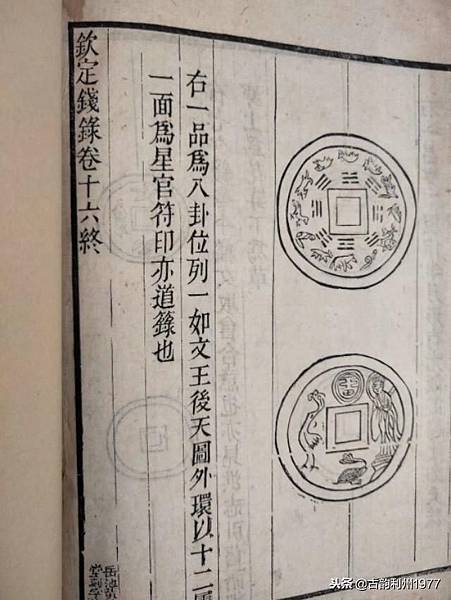 右一品為八卦位列一如文王後天圖外環以十二
一面為星官符印亦道籙也
欽定錢錄卷十六終
头条@古韵利州1977